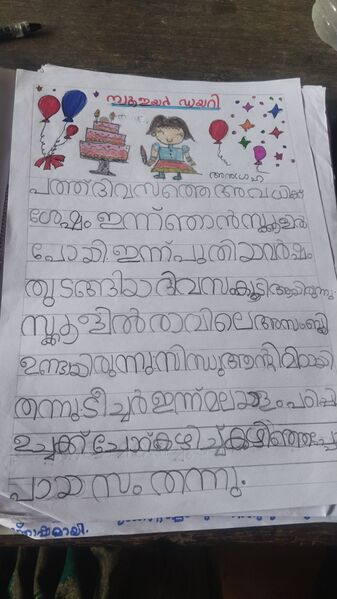 സംയുക്ത ഡയറി
പത്ത് ദിവസത്തെ അവധിക്ക്
ശേഷം ഇന്ന് ഞാൻ സ്കൂളിൽ
പോയി. ഇന്ന് പുതിയ വർഷം
തുടങ്ങിയ ദിവസം കൂടി ആയിരുന്നു.
സ്കൂളിൽ രാവിലെ അസംബ്ലി
ഉണ്ടായിരുന്നു. സിന്ധു ആന്റി മിഠായി
തന്നു. ടീച്ചർ ഇന്ന് മലയാളം പഠിപ്പി
ഉച്ചക്ക് ചോറ് കഴിച്ച് കഴിഞ്ഞപ്പോ
പായസം തന്നു.